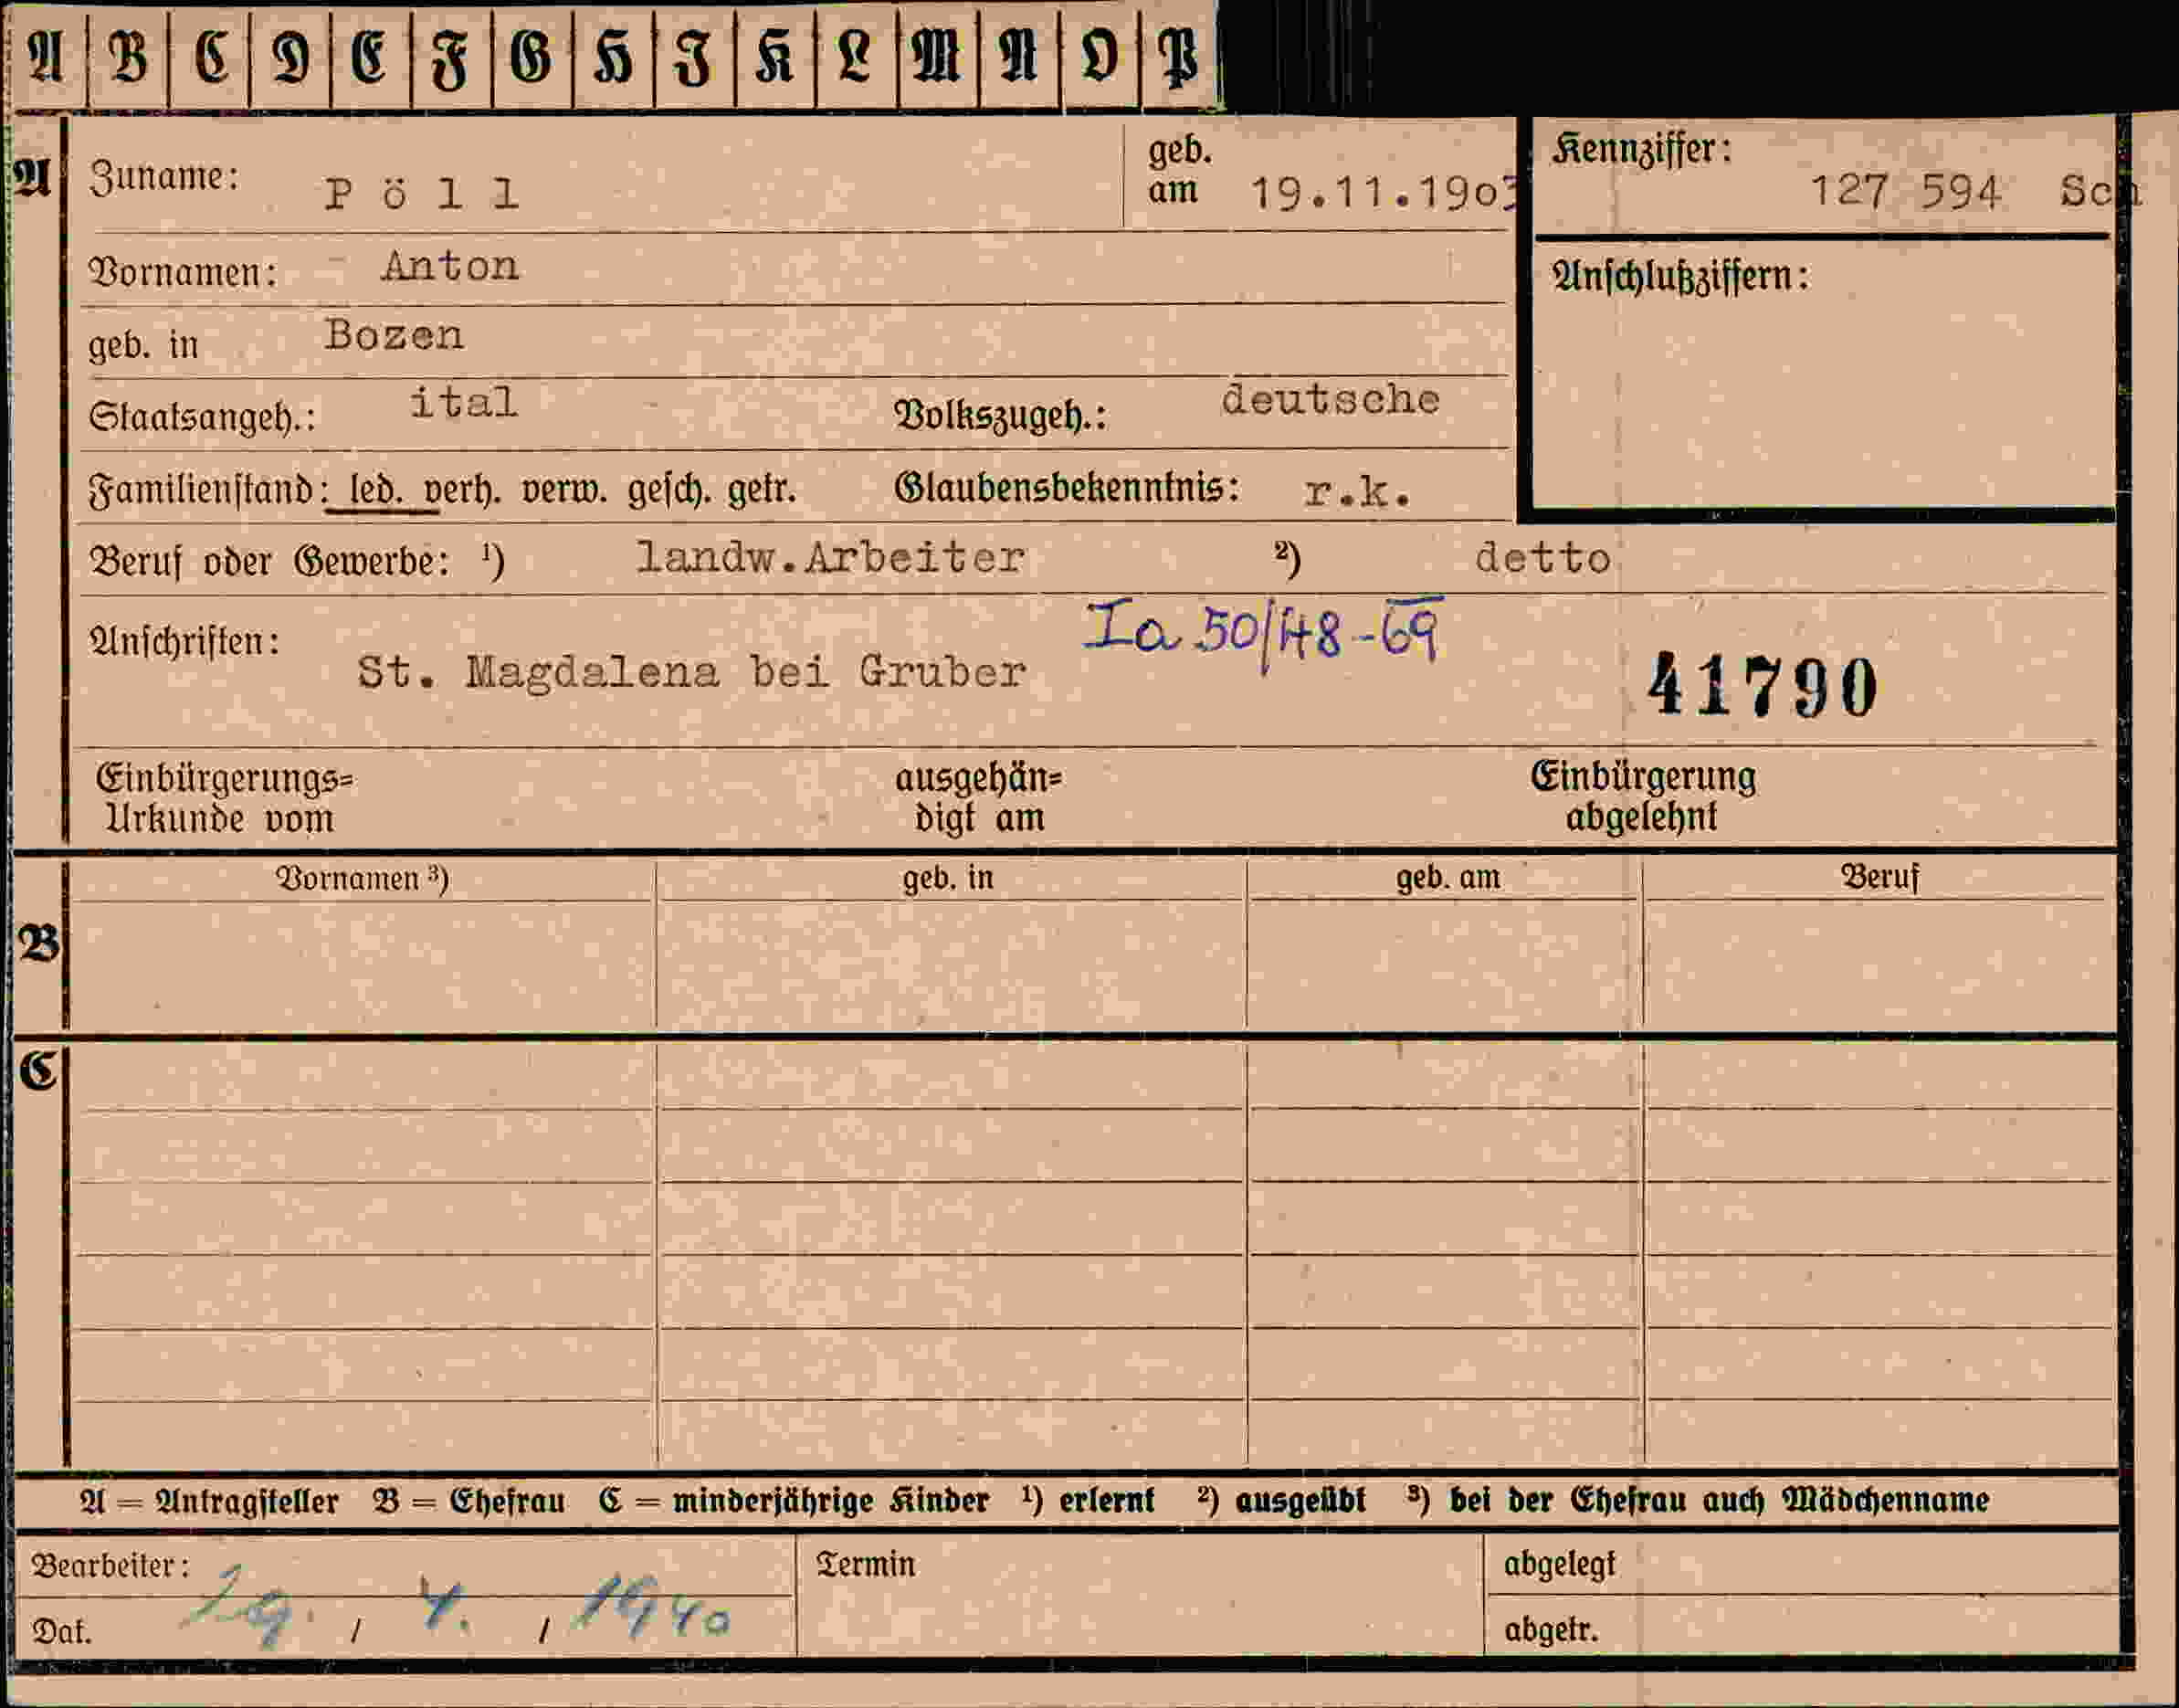 A B C D E F G H I K L M N O P
A Zuname: Pöll geb. am 19.11.1903 Kennziffer: 127 594 Sch
Vornamen: Anton Anschlußziffern:
geb. in Bozen
Staatsangeh.: ital Volkszugeh.: deutsche
Familienstand: led. verh. verw. gesch. getr. Glaubensbekenntnis: r.k.
Beruf oder Gewerbe: ¹) landw.Arbeiter ²) detto
Ia 50/48-69
Anschriften: St. Magdalena bei Gruber 41790
Einbürgerungs= ausgehän= Einbürgerung
Urkunde vom digt am abgelehnt
Vornamen ³) geb. in geb. am Beruf
B
C
A = Antragsteller B = Ehefrau C = minderjährige Kinder ¹) erlernt ²) ausgeübt ³) bei der Ehefrau auch Mädchenname
Bearbeiter: Termin abgelegt
Dat. 29. / 4. / 1940 abgetr.